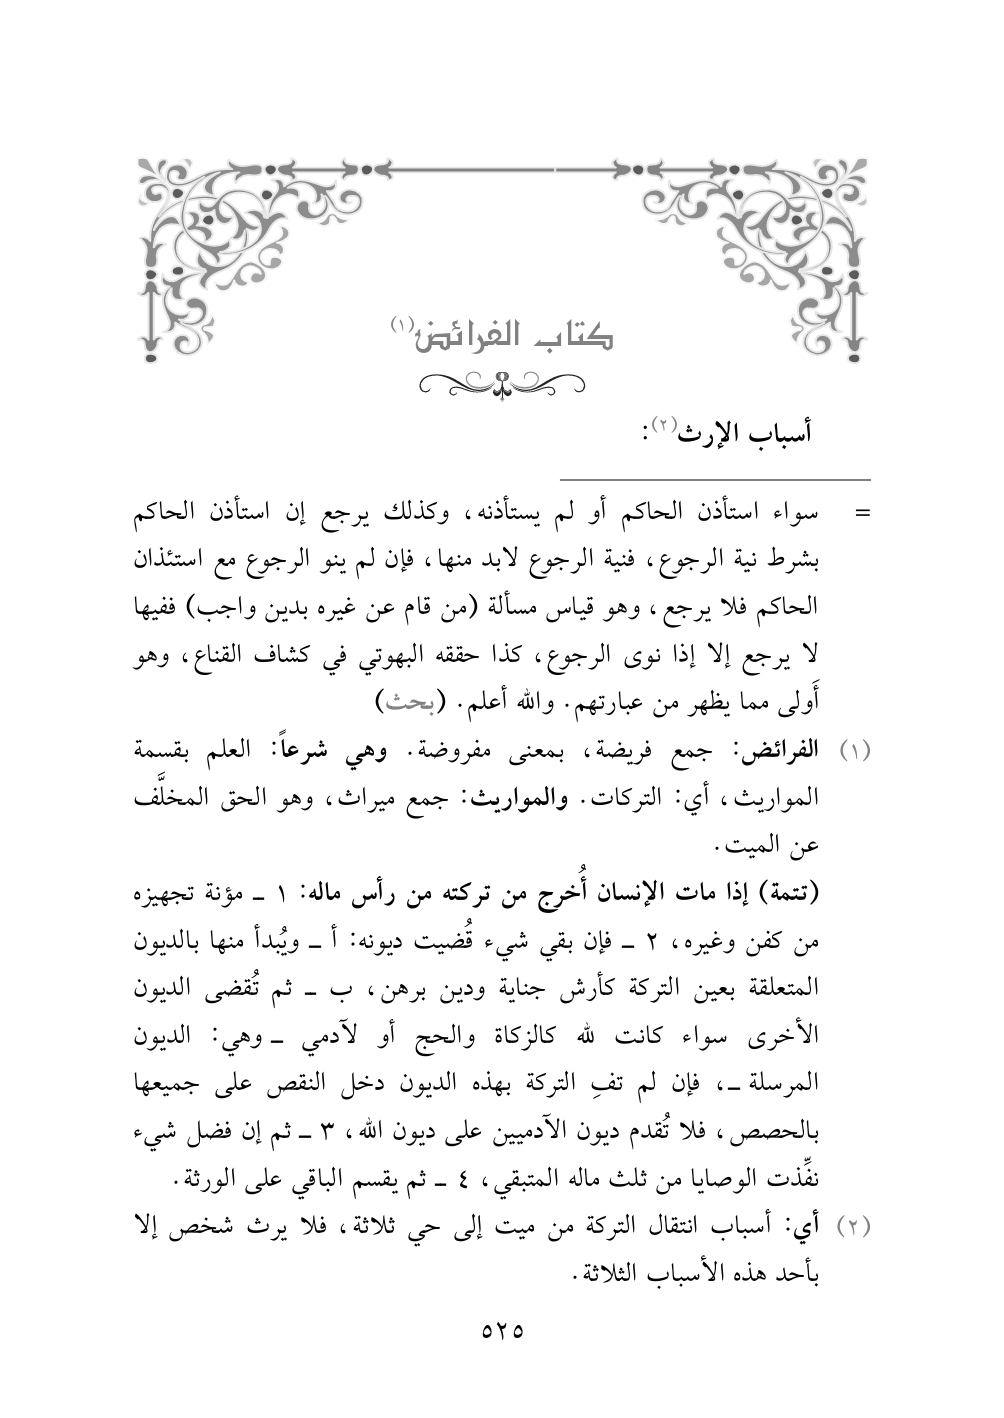 كتاب الفرائض(١)
أسباب الإرث(٢):
= سواء استأذن الحاكم أو لم يستأذنه، وكذلك يرجع إن استأذن الحاكم
بشرط نية الرجوع، فنية الرجوع لابد منها، فإن لم ينو الرجوع مع استئذان
الحاكم فلا يرجع، وهو قياس مسألة (من قام عن غيره بدين واجب) ففيها
لا يرجع إلا إذا نوى الرجوع، كذا حققه البهوتي في كشاف القناع، وهو
أَولى مما يظهر من عبارتهم. والله أعلم. (بحث)
(١) الفرائض: جمع فريضة، بمعنى مفروضة. وهي شرعاً: العلم بقسمة
المواريث، أي: التركات. والمواريث: جمع ميراث، وهو الحق المخلَّف
عن الميت.
(تتمة) إذا مات الإنسان أُخرج من تركته من رأس ماله: ١ ـ مؤنة تجهيزه
من كفن وغيره، ٢ ـ فإن بقي شيء قُضيت ديونه: أ ـ ويُبدأ منها بالديون
المتعلقة بعين التركة كأرش جناية ودين برهن، ب ـ ثم تُقضى الديون
الأخرى سواء كانت لله كالزكاة والحج أو لآدمي ـ وهي: الديون
المرسلة ـ، فإن لم تفِ التركة بهذه الديون دخل النقص على جميعها
بالحصص، فلا تُقدم ديون الآدميين على ديون الله، ٣ ـ ثم إن فضل شيء
نفِّذت الوصايا من ثلث ماله المتبقي، ٤ ـ ثم يقسم الباقي على الورثة.
(٢) أي: أسباب انتقال التركة من ميت إلى حي ثلاثة، فلا يرث شخص إلا
بأحد هذه الأسباب الثلاثة.
٥٢٥